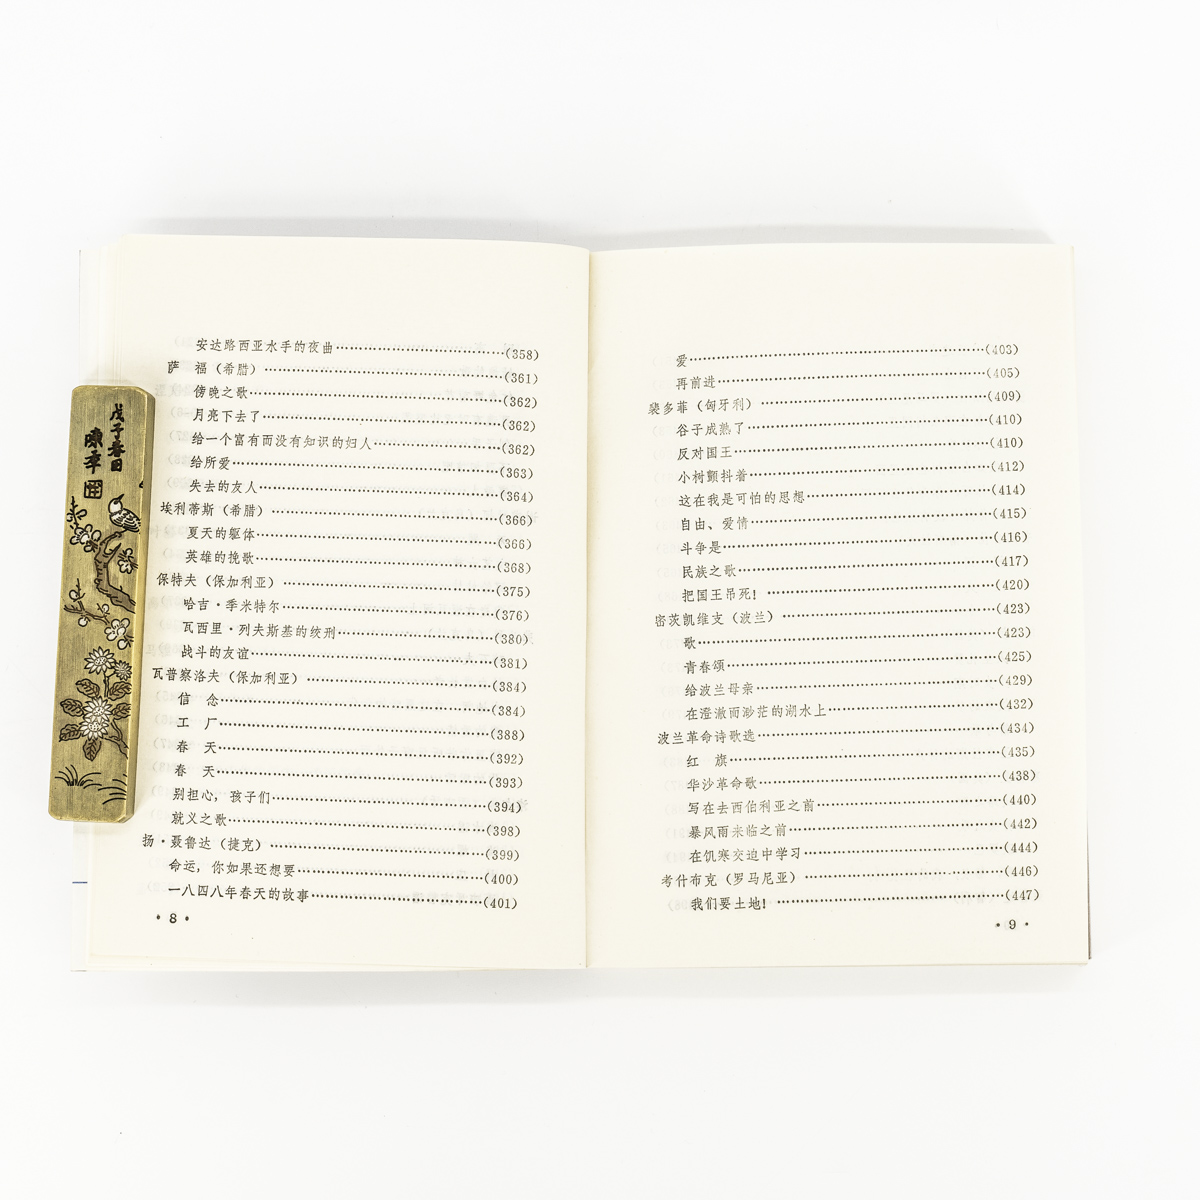 戊子春日
安达路西亚水手的夜曲……(358)
萨　福（希腊）……(361)
傍晚之歌……(362)
月亮下去了……(362)
给一个富有而没有知识的妇人……(362)
给所爱……(363)
失去的友人……(364)
埃利蒂斯（希腊）……(366)
夏天的躯体……(366)
英雄的挽歌……(368)
保特夫（保加利亚）……(375)
哈吉·季米特尔……(376)
瓦西里·列夫斯基的绞刑……(380)
战斗的友谊……(381)
瓦普察洛夫（保加利亚）……(384)
信　念……(384)
工　厂……(388)
春　天……(392)
春　天……(393)
别担心，孩子们……(394)
就义之歌……(398)
扬·聂鲁达（捷克）……(399)
命运，你如果还想要……(400)
一八四八年春天的故事……(401)
· 8 ·
爱……(403)
再前进……(405)
裴多菲（匈牙利）……(409)
谷子成熟了……(410)
反对国王……(410)
小树颤抖着……(412)
这在我是可怕的思想……(414)
自由、爱情……(415)
斗争是……(416)
民族之歌……(417)
把国王吊死！……(420)
密茨凯维支（波兰）……(423)
歌……(423)
青春颂……(425)
给波兰母亲……(429)
在澄澈而渺茫的湖水上……(432)
波兰革命诗歌选……(434)
红　旗……(435)
华沙革命歌……(438)
写在去西伯利亚之前……(440)
暴风雨来临之前……(442)
在饥寒交迫中学习……(444)
考什布克（罗马尼亚）……(446)
我们要土地！……(447)
· 9 ·